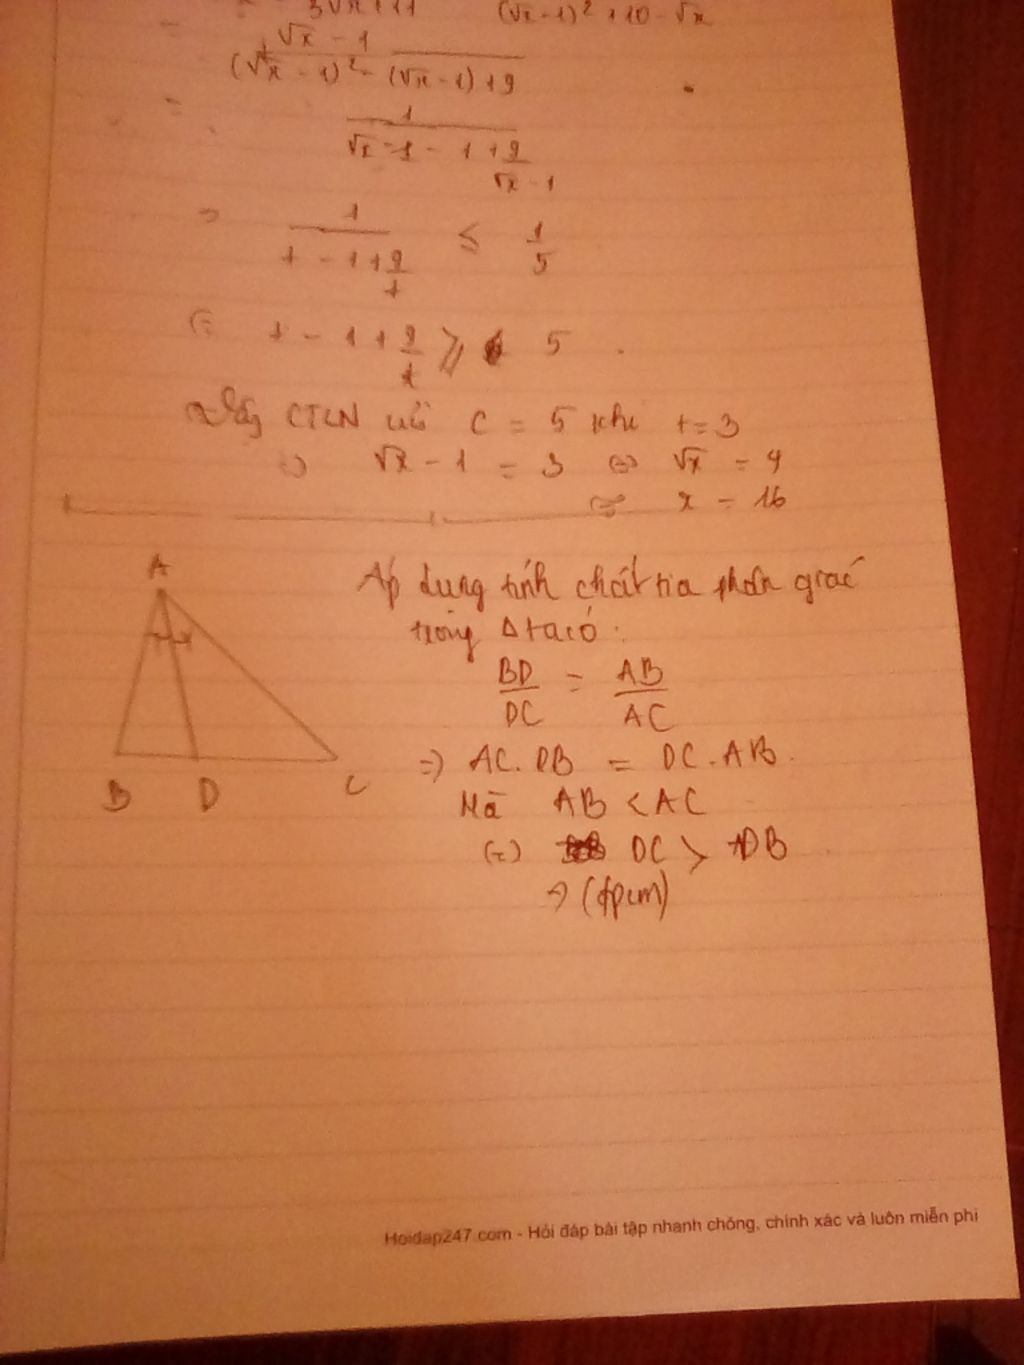 3√x + 11    (√x - 1)² + 10 - √x
= √x - 1
(√x - 1)² - (√x - 1) + 9
= 1
√x - 1 - 1 + 9
√x - 1
= 1 ≤ 1
t - 1 + 9 5
t
t - 1 + 9 ≥ 5
t
GTLN C = 5 khi t = 3
√x - 1 = 3 ⇔ √x = 4
⇔ x = 16
A
Áp dụng tính chất tia phân giác
trong Δ ta có :
BD = AB
DC AC
⇒ AC.DB = DC.AB
B D C
Mà AB < AC
DC > DB
⇒ (đpcm)
Hoidap247.com - Hỏi đáp bài tập nhanh chóng, chính xác và luôn miễn phí